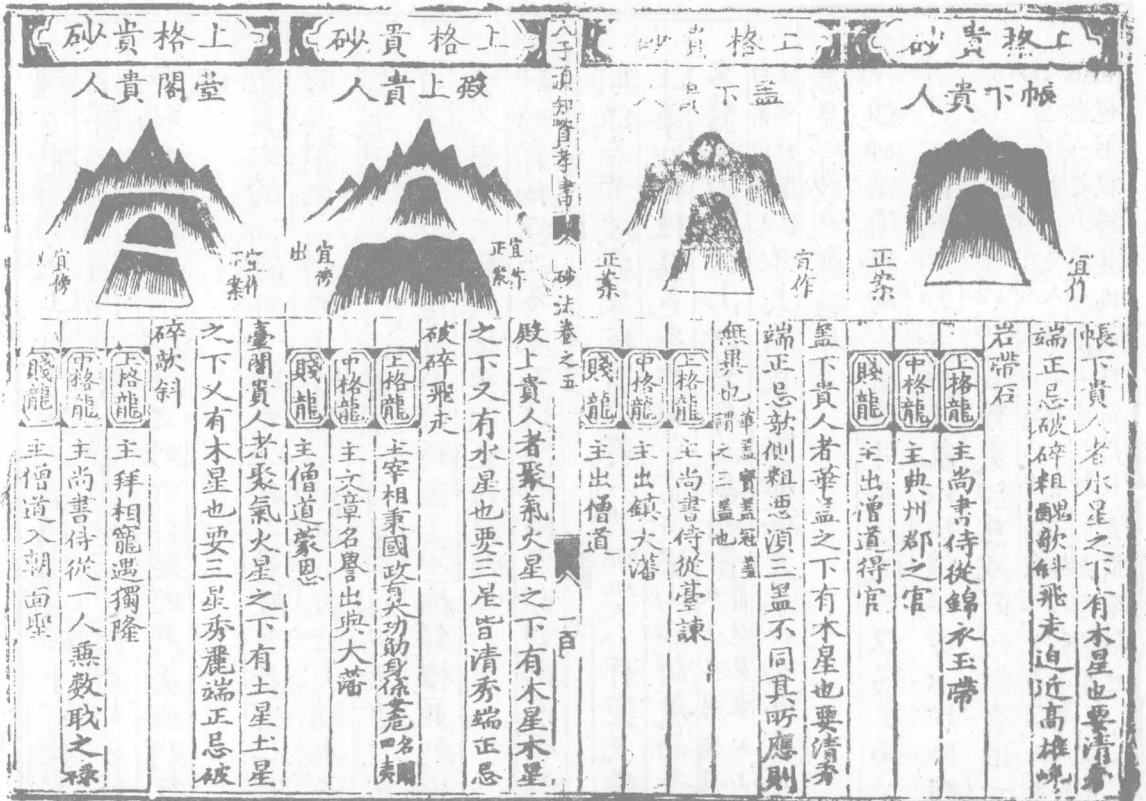 上格貴砂
帳下貴人
宜作
正案
帳下貴人者水星之下有木星也要清秀
端正忌破碎粗醜欹斜飛走迫近高雄
岩帶石
上格龍 主尚書侍從錦衣玉帶
中格龍 主典州郡之官
賤龍 主出僧道得官
上格貴砂
蓋下貴人
宜作
正案
蓋下貴人者華蓋之下有木星也要清秀
端正忌欹側粗惡須三蓋不同其所應則
無異也 華蓋寶蓋冠蓋
謂之三蓋也
上格龍 主尚書侍從臺諫
中格龍 主出鎮大藩
賤龍 主出僧道
人子須知資孝書 砂法卷之五
百
上格貴砂
殿上貴人
宜作
正案
宜傍
出
殿上貴人者聚氣火星之下有木星木星
之下又有水星也要三星皆清秀端正忌
破碎飛走
上格龍 主宰相秉國政
中格龍 主文章名譽出典大藩
賤龍 主僧道蒙恩
上格貴砂
臺閣貴人
宜作
正案
宜傍
臺閣貴人者聚氣火星之下有土星土星
之下又有木星也要三星秀麗端正忌破
碎欹斜
上格龍 主拜相寵遇獨隆
中格龍 主尚書侍從一人兼數職之祿
賤龍 主僧道入朝面聖